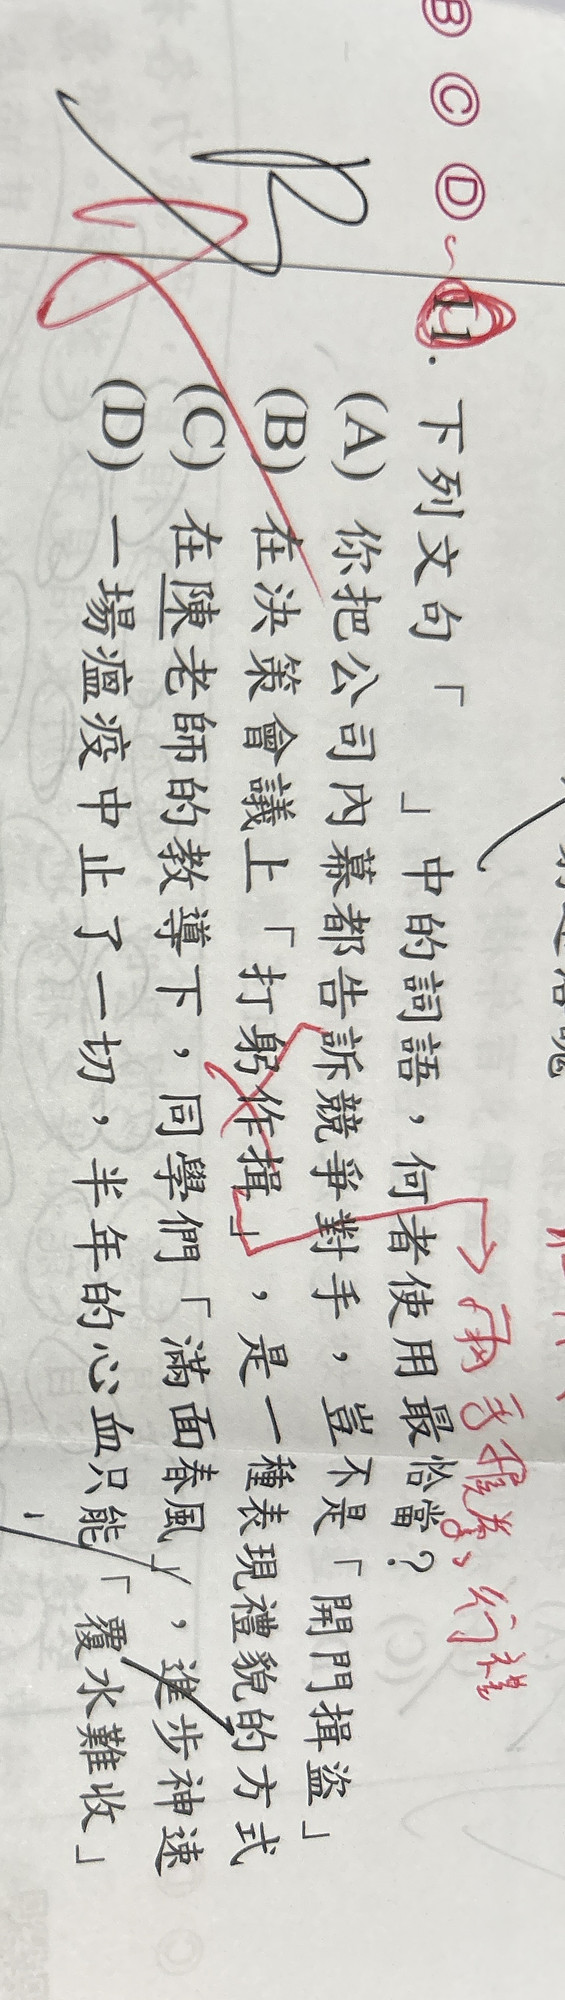 Ⓑ Ⓒ Ⓓ 11. 下列文句「　　」中的詞語，何者使用最恰當？
(A) 你把公司內幕都告訴競爭對手，豈不是「開門揖盜」
(B) 在決策會議上「打躬作揖」，是一種表現禮貌的方式
(C) 在陳老師的教導下，同學們「滿面春風」，進步神速
(D) 一場瘟疫中止了一切，半年的心血只能「覆水難收」
兩手 行禮